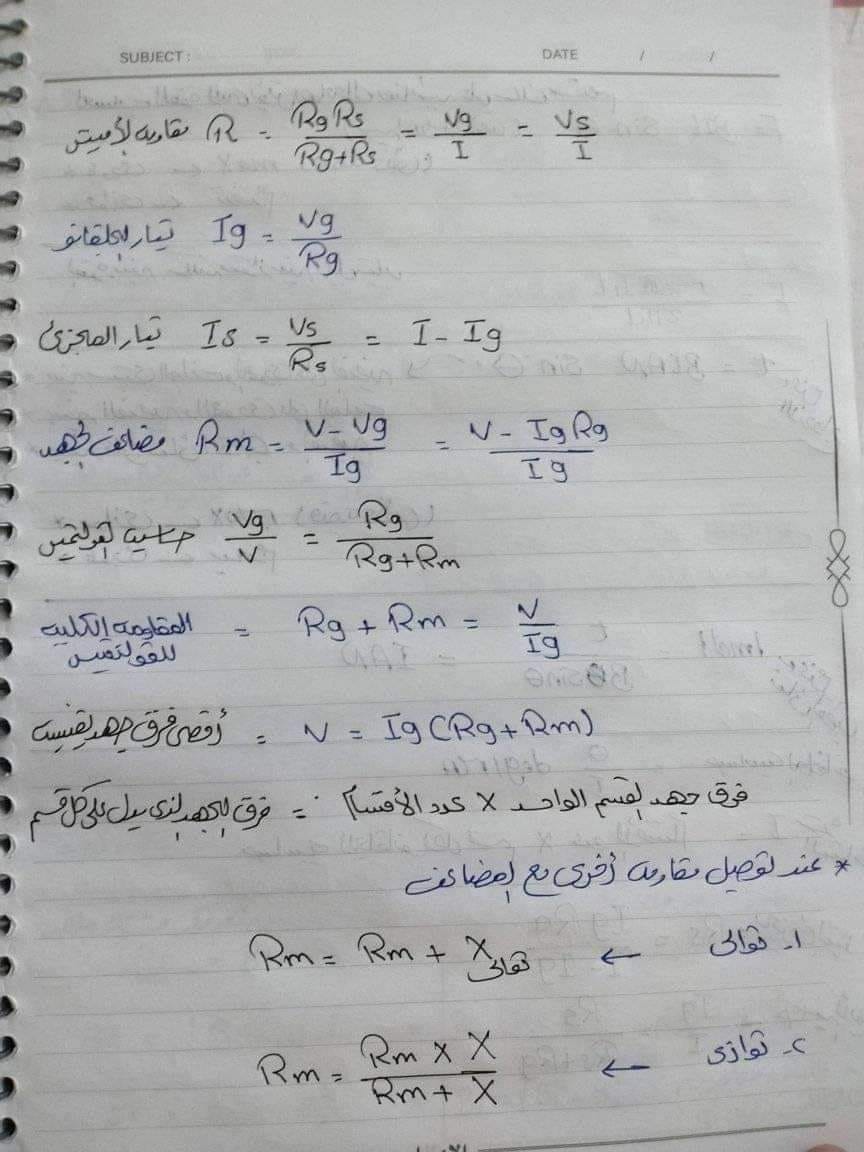 SUBJECT: DATE / /
مقاومة الأميتر R = RgRs / Rg+Rs = Vg / I = Vs / I
تيار الجلفانو Ig = Vg / Rg
تيار المجزئ Is = Vs / Rs = I - Ig
مضاعف الجهد Rm = V - Vg / Ig = V - IgRg / Ig
حساسية الفولتميتر Vg / V = Rg / Rg+Rm
المقاومة الكلية للفولتميتر = Rg + Rm = V / Ig
أقصى فرق جهد يقيسه = V = Ig (Rg+Rm)
فرق الجهد الذى يدل على كل قسم = فرق جهد القسم الواحد X عدد الأقسام
* عند توصيل مقاومة أخرى مع المضاعف
١- توالى ← Rm = Rm + X توالى
٢- توازى ← Rm = Rm x X / Rm + X